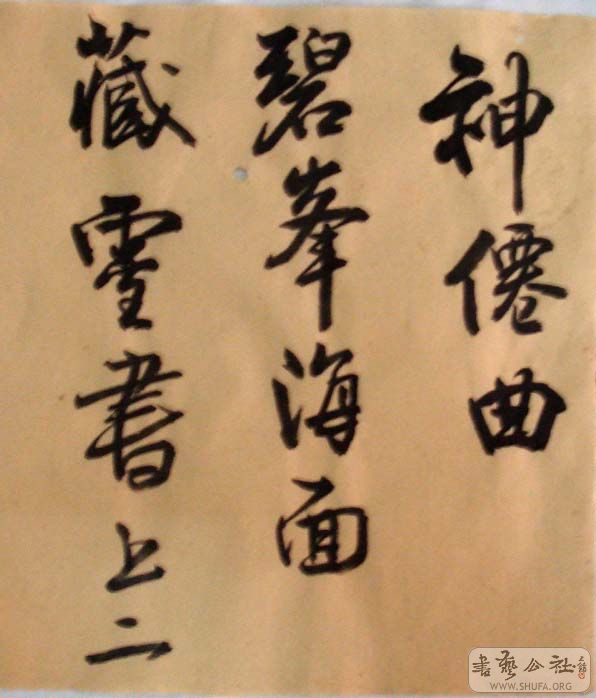 神僊曲
碧峯海面
藏靈書上二
書藝公社
WWW.SHUFA.ORG